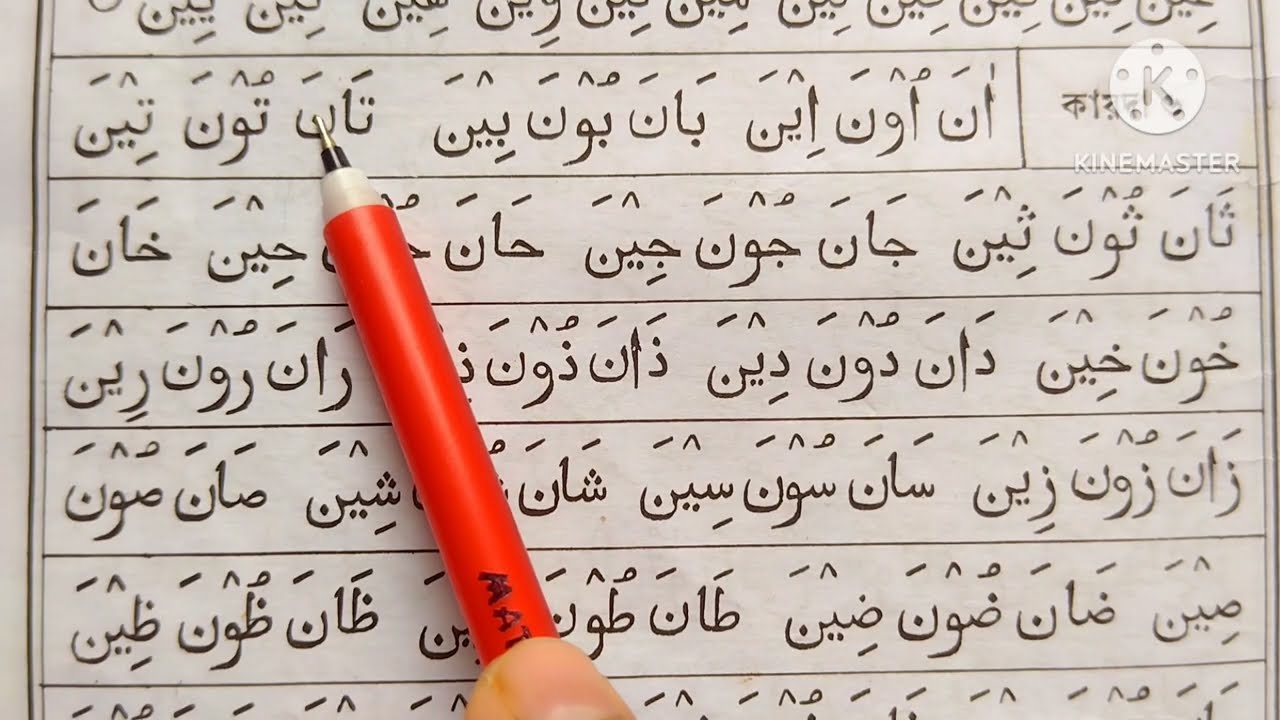 কায়দা
KINEMASTER
اٰنَ اُوْنَ اِيْنَ بَانَ بُوْنَ بِيْنَ تَانَ تُوْنَ تِيْنَ
ثَانَ ثُوْنَ ثِيْنَ جَانَ جُوْنَ جِيْنَ حَانَ حِيْنَ خَانَ
خُوْنَ خِيْنَ دَانَ دُوْنَ دِيْنَ ذَانَ ذُوْنَ رَانَ رُوْنَ رِيْنَ
زَانَ زُوْنَ زِيْنَ سَانَ سُوْنَ سِيْنَ شَانَ شِيْنَ صَانَ صُوْنَ
صِيْنَ ضَانَ ضُوْنَ ضِيْنَ طَانَ طُوْنَ ظَانَ ظُوْنَ ظِيْنَ